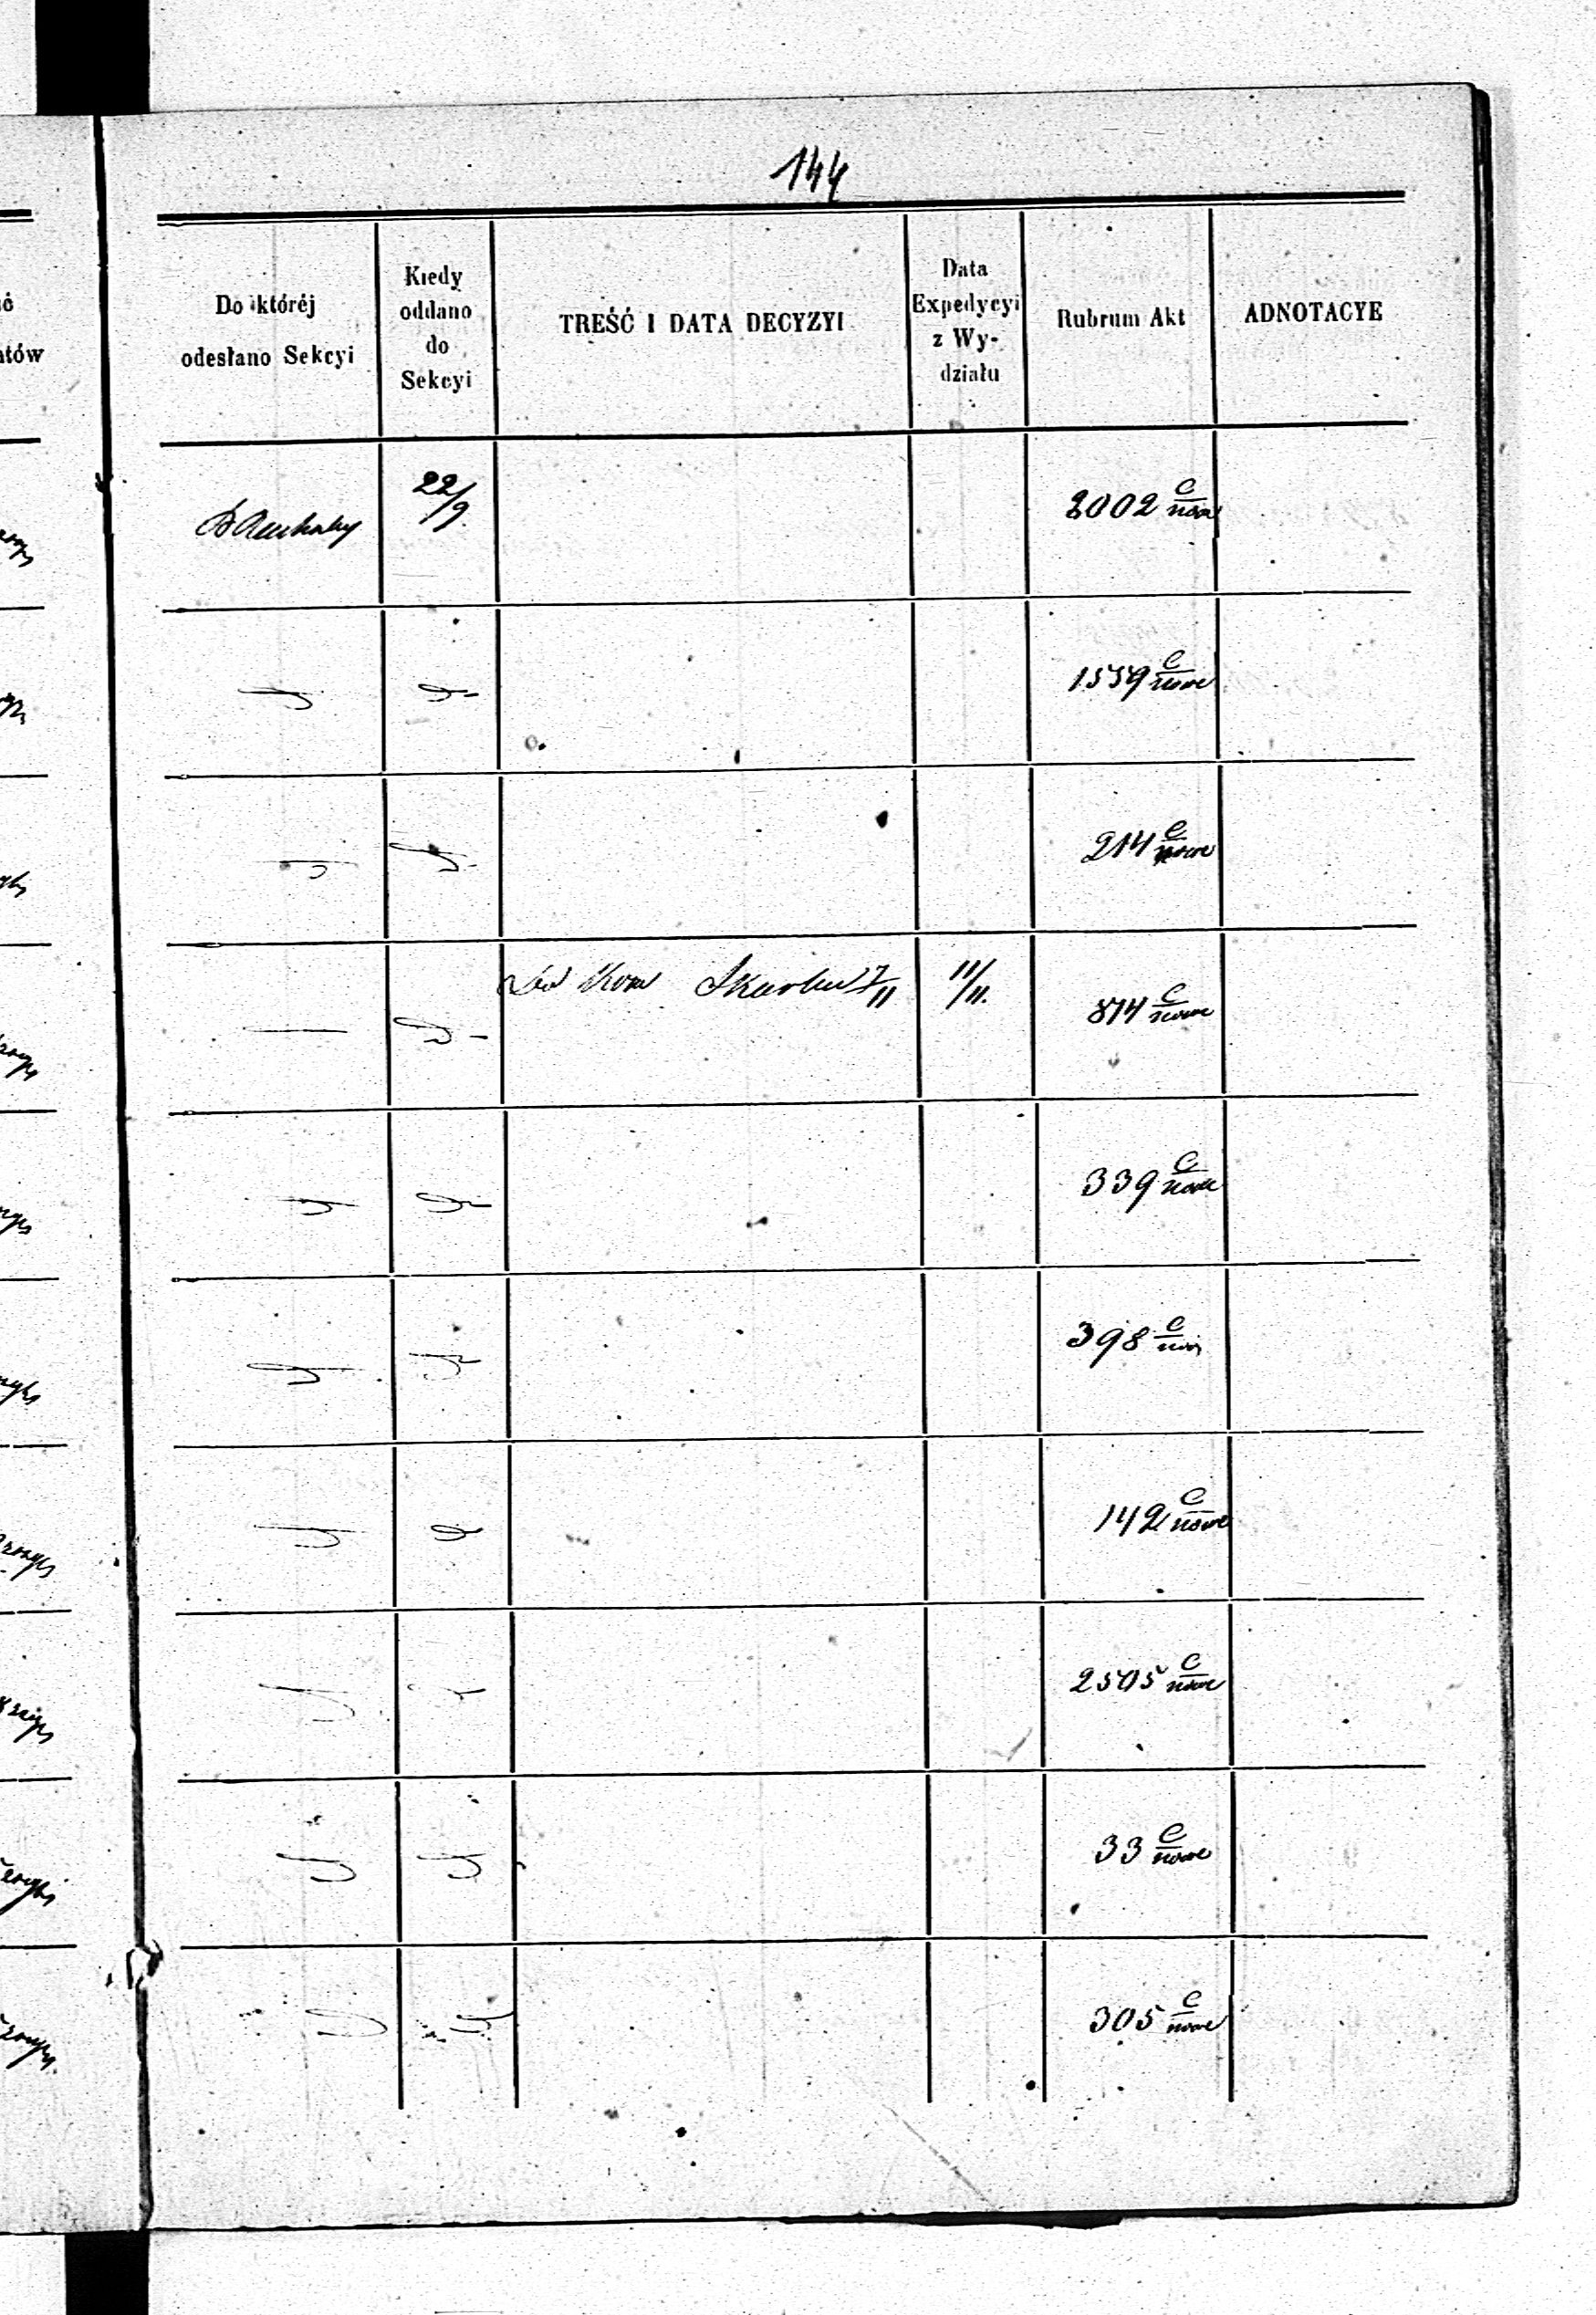 144
Do któréj
odesłano Sekcyi
Kiedy
oddano
do
Sekcyi
TREŚĆ I DATA DECYZYI
Data
Expedycyi
z Wy-
działu
Rubrum Akt
ADNOTACYE
22/9.
2002 C/nowe
1559 C/nowe
214 C/nowe
Kom Skarbu 7/11 11/11.
874 C/nowe
339 C/nowe
398 C/now
142 C/nowe
2505 C/nowe
33 C/nowe
305 C/nowe